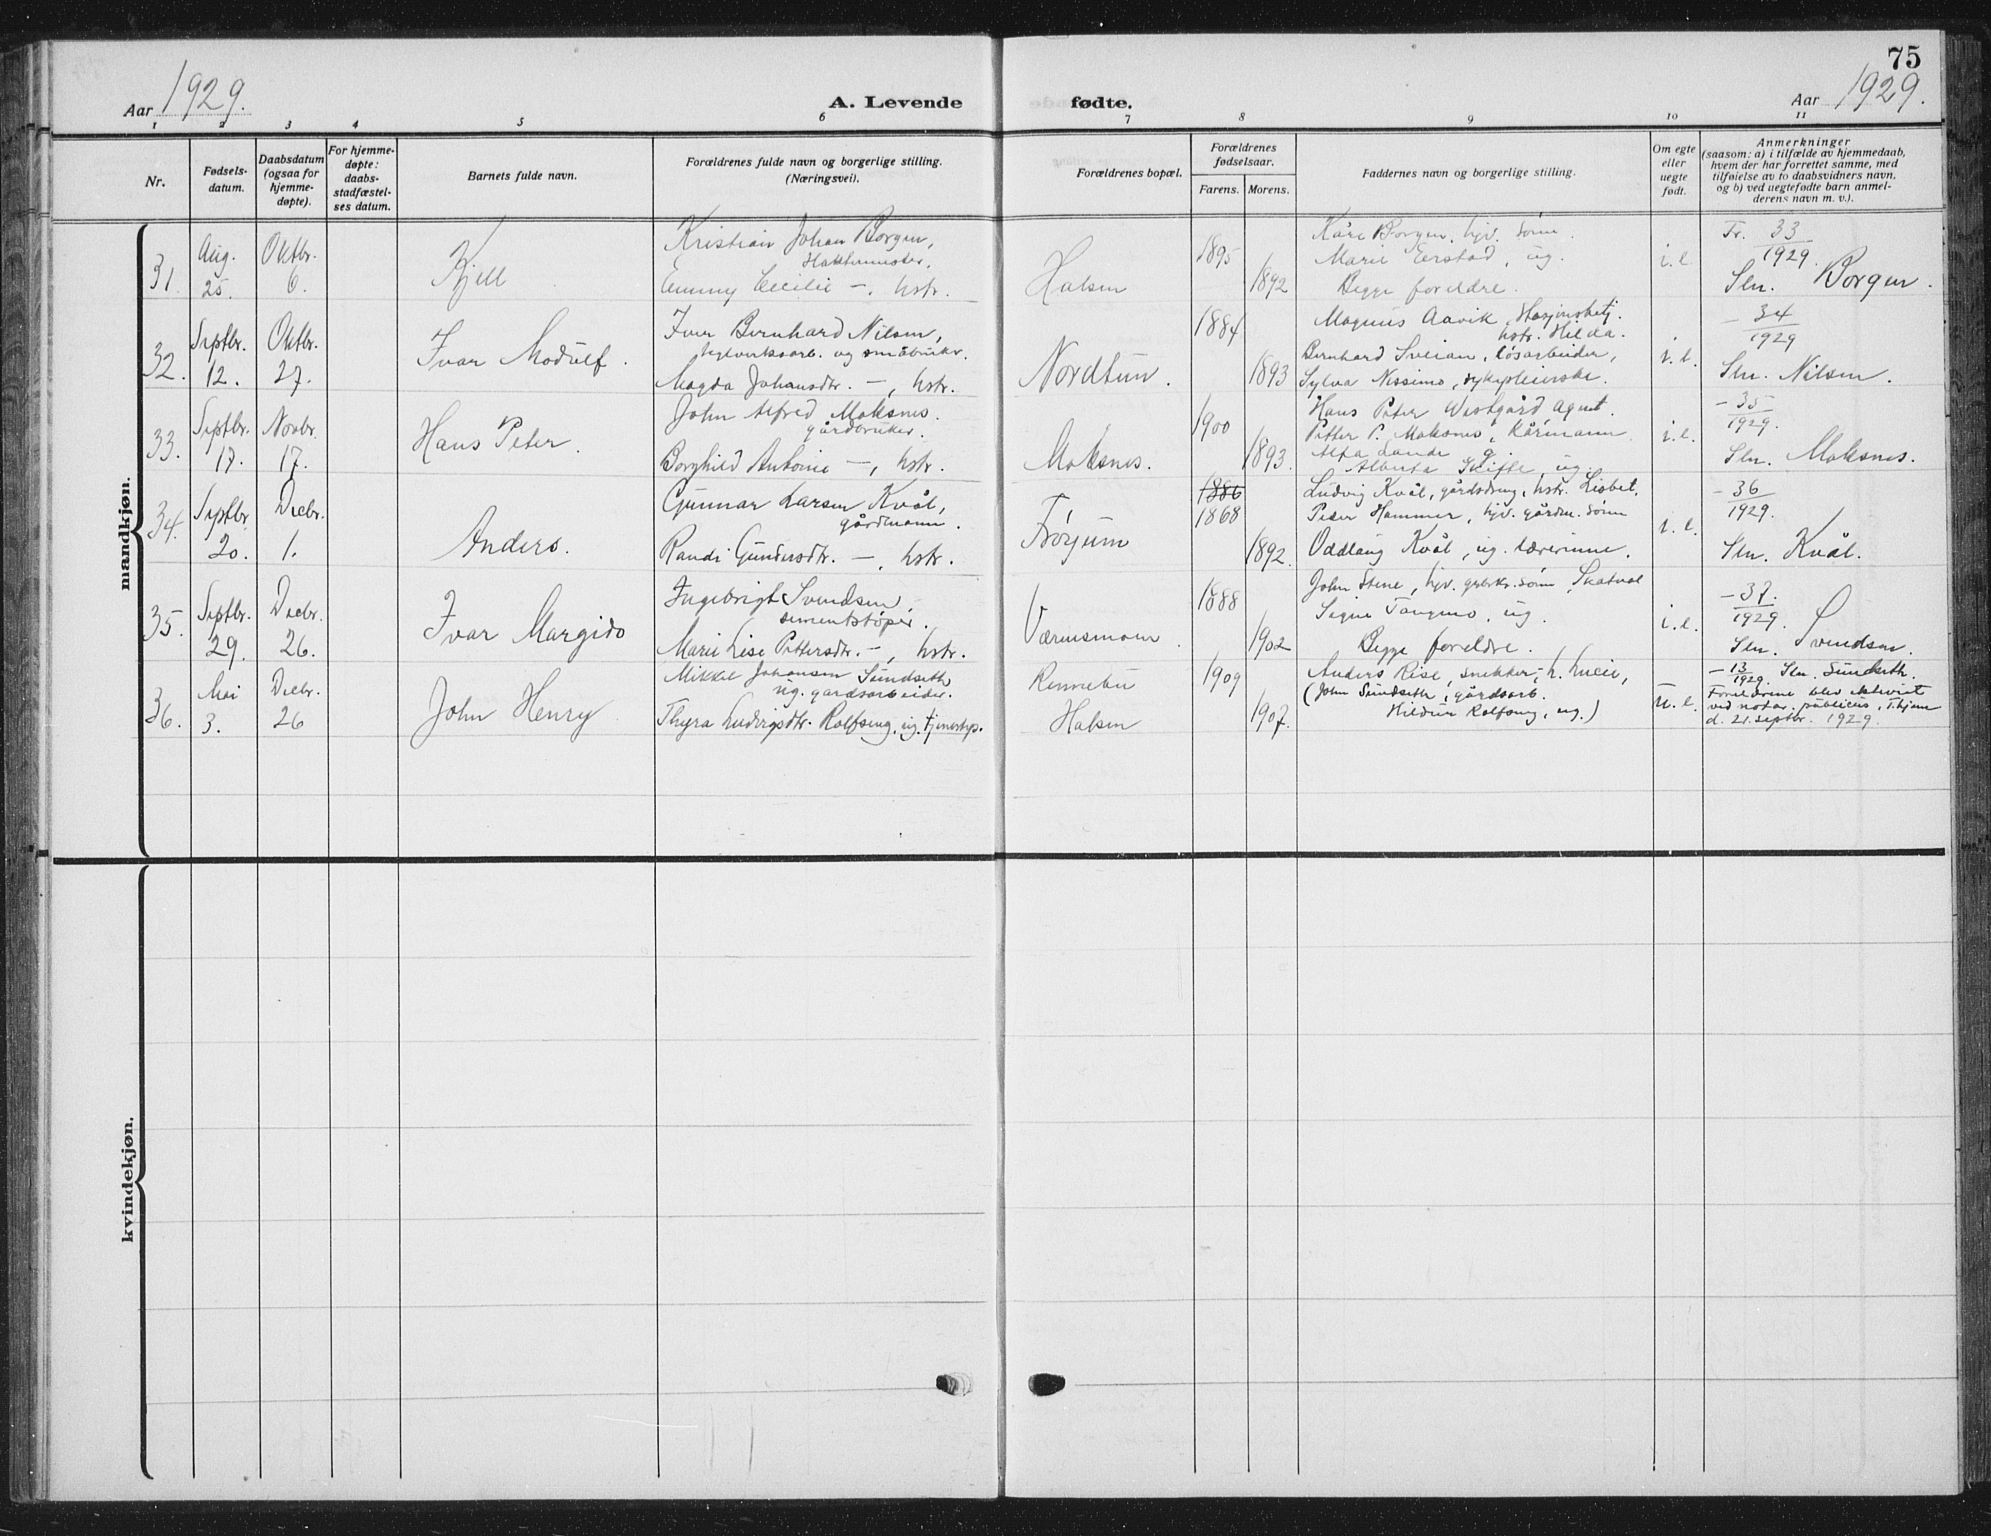 75
Aar 1929.
A. Levende
fødte.
Aar 1929.
1 2 3 4 5 6 7 8 9 10 11
Nr.
Fødsels-
datum.
Daabsdatum
(ogsaa for
hjemme-
døpte).
For hjemme-
døpte:
daabs-
stadfæstel-
ses datum.
Barnets fulde navn.
Forældrenes fulde navn og borgerlige stilling.
(Næringsvei).
Forældrenes bopæl.
Forældrenes
fødselsaar.
Farens. Morens.
Faddernes navn og borgerlige stilling.
Om egte
eller
uegte
født.
Anmerkninger
(saasom: a) i tilfælde av hjemmedaab,
hvem der har forrettet samme, med
tilføielse av to daabsvidners navn,
og b) ved uegtefødte barn anmel-
derens navn m. v.).
mandkjøn.
31. Aug. 25. Oktbr. 6.
Kjell
Kristian Johan Borgen,
Emmy Cecilie —, hstr.
Halsen
1895
1892
Kåre Borgen, hjv. sønn
Marie Erstad, ug.
Begge foreldre.
i. e.
Fr. 33
1929.
Sln. Borgen.
32. Septbr. 12. Oktbr. 27.
Ivar Modulf.
Iver Bernhard Nilsen,
og småbruker.
Magda Johansdtr. —, hstr.
Nordtun.
1884
1893
Magnus Aavik, stasjonsbetj.
hstr. Hilda.
Bernhard Sveian, løsarbeider,
Sylva Nissimo, sykepleierske.
i. e.
— 34
1929
Sln. Nilsen.
33. Septbr. 17. Novbr. 17.
Hans Peter.
John Alfred Moksnes.
gårdbruker.
Borghild Antonie —, hstr.
Moksnes.
1900
1893.
Hans Peter Westgård agent.
Petter P. Moksnes, kårmann
Alfa Lande
Alberta Skifte, ug.
i. e.
— 35
1929.
Sln. Moksnes.
34. Septbr. 20. Decbr. 1.
Anders.
Gunnar Larsen Kvål,
gårdmann.
Randi Gundersdtr. —, hstr.
Trøgum
1886
1868
1892.
Ludvig Kvål, gårdsdreng, hstr. Lisbet,
Peter Hammer, hjv. gårdm. sønn
Oddlaug Kvål, ug. lærerinne.
i. e.
— 36
1929.
Sln. Kvål.
35. Septbr. 29. Decbr. 26.
Ivar Margido
Ingebrigt Svendsen,
sementstøper.
Marie Lise Pettersdtr. —, hstr.
Værnesmoen
1888
1902
John Stene, hjv. gbrkr. sønn, Skatval
Signe Tangmo, ug.
Begge foreldre.
i. e.
— 37.
1929.
Sln. Svendsen.
36. Mai 3. Decbr. 26
John Henry
Mikkel Johansen Sundseth
ug. gårdsarbeider.
Thyra Ludvigsdtr. Rolfseng, ug. tjenestep.
Rennebu
Halsen
1909
1907.
Anders Rise, snekker, h. Lucie,
(John Sundseth, gårdsarb.
Hildur Rolfseng, ug.)
u. e.
— 13
1929. Sln. Sundseth.
Foreldrene blev ekteviet
ved notar. publicus, T.hjem
d. 21. septbr. 1929.
kvindekjøn.